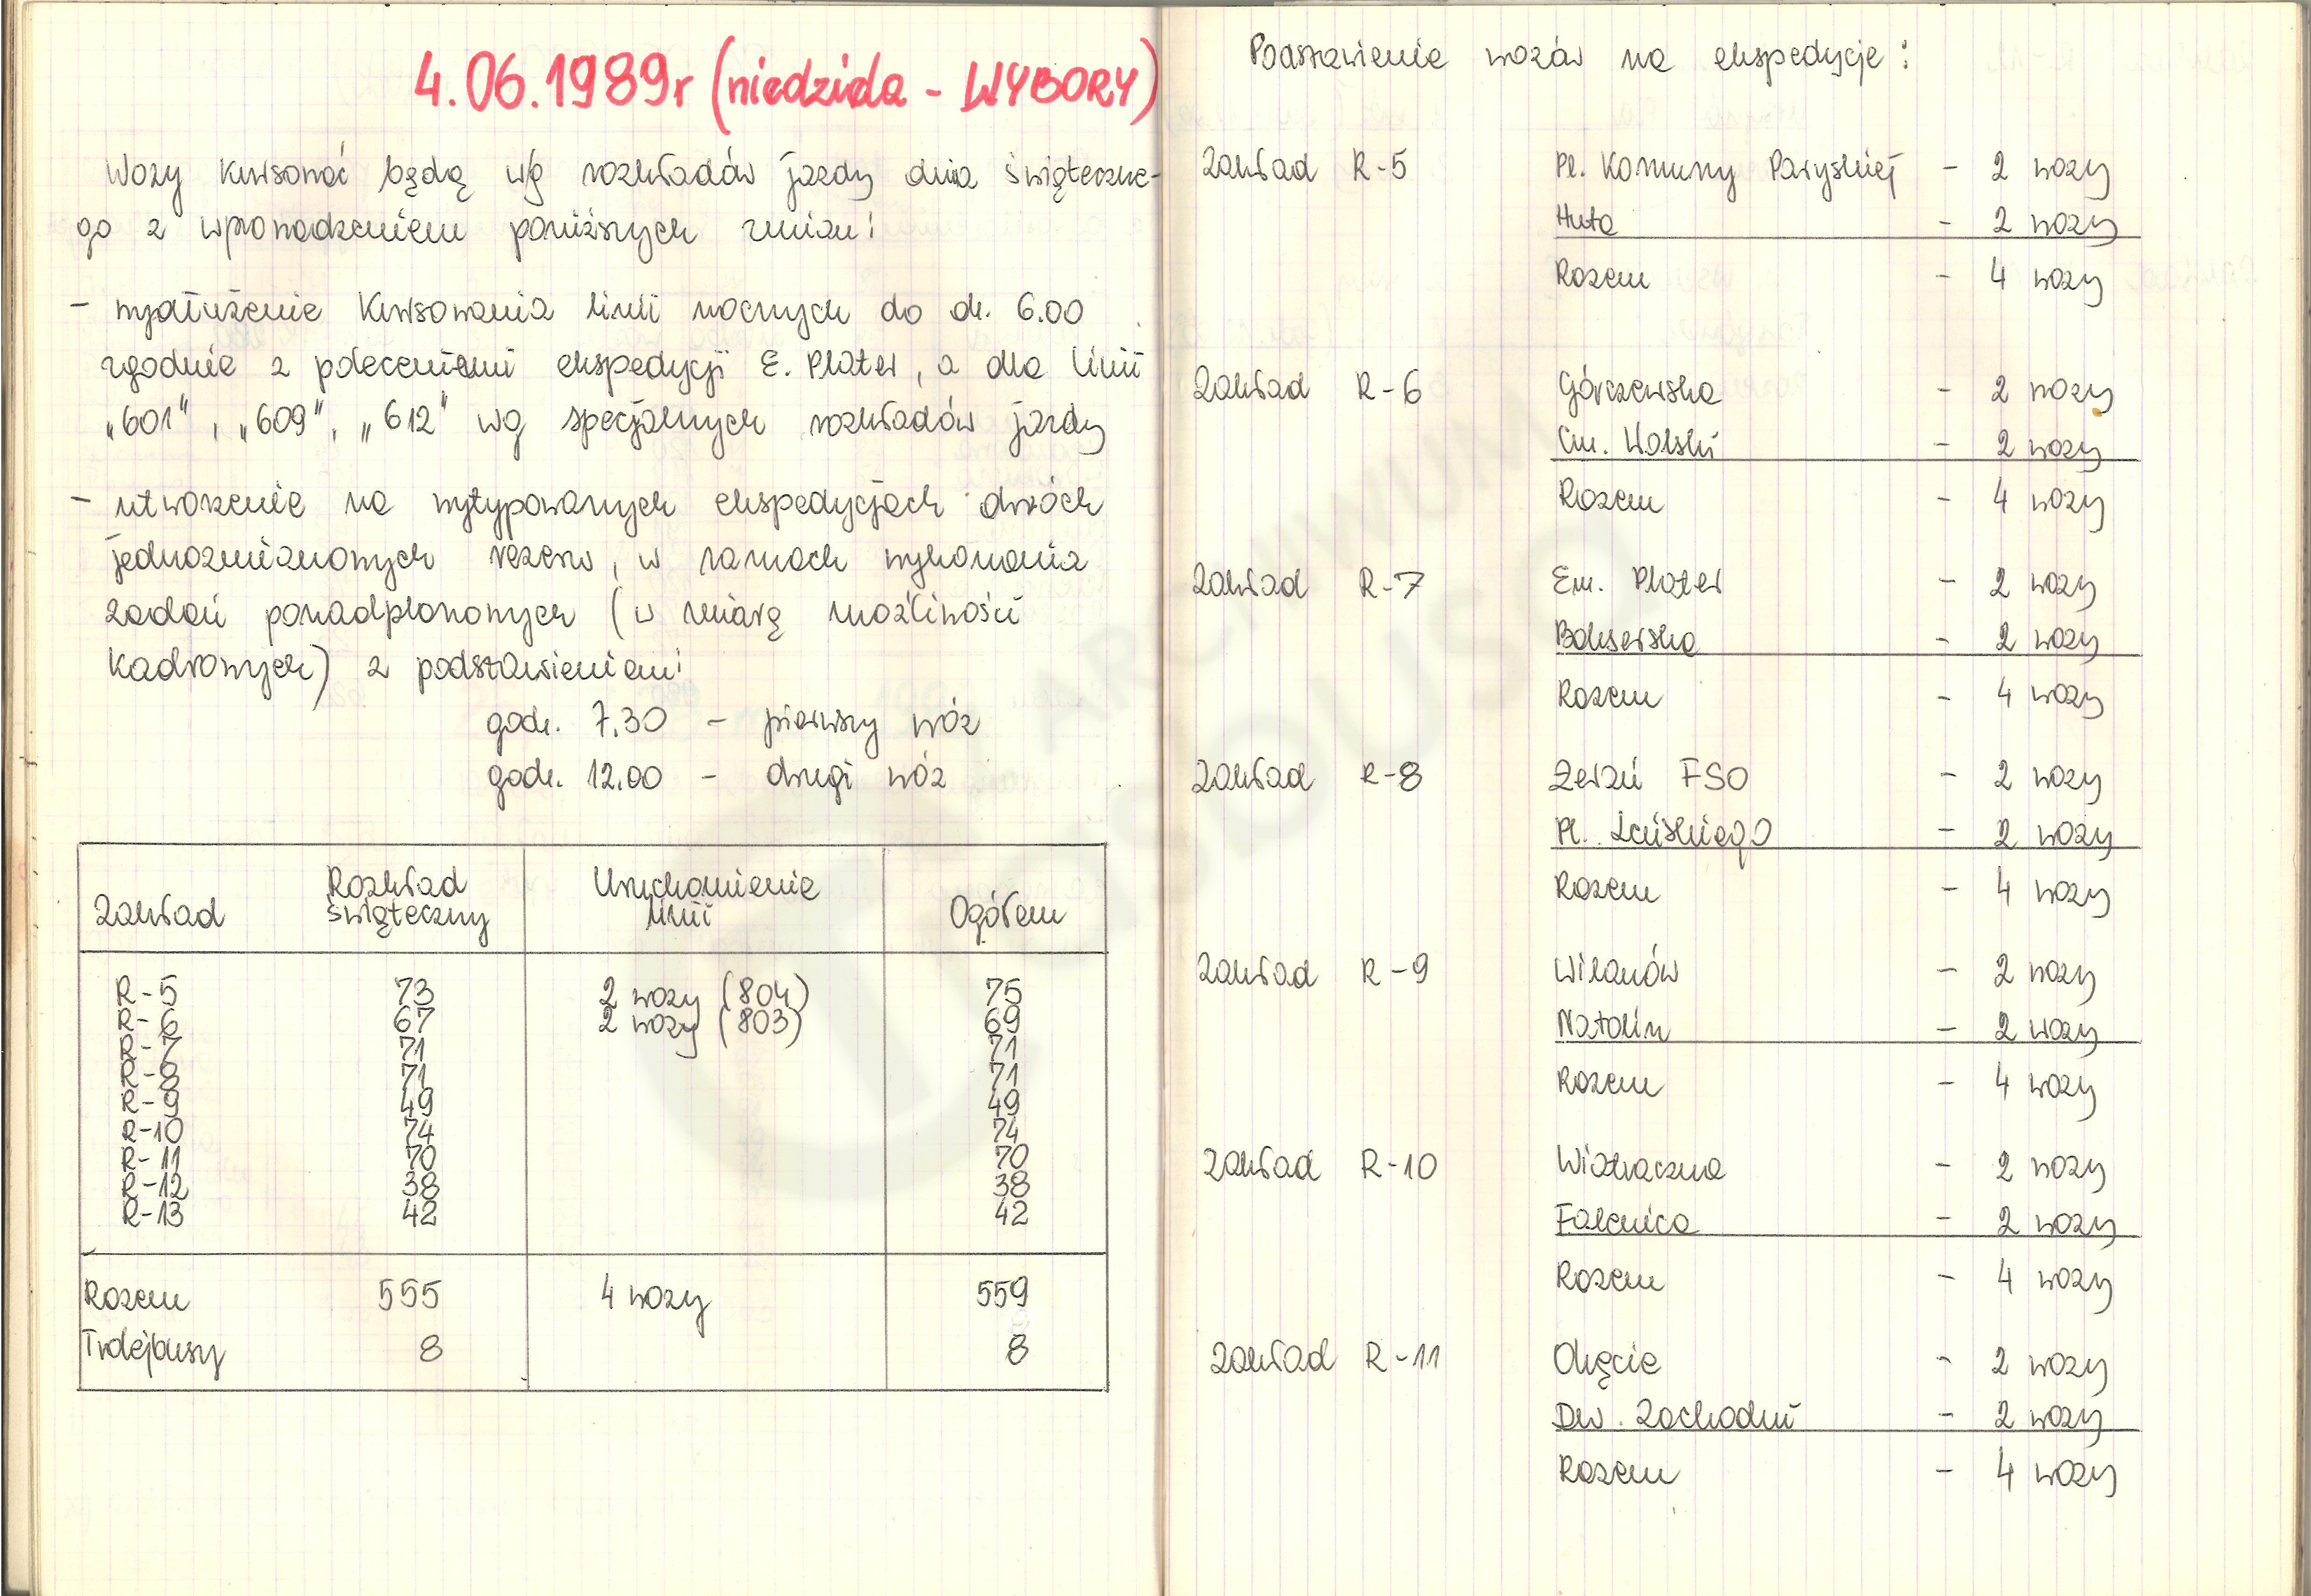 4.06.1989r (niedziela - WYBORY)
Wozy kursować będą wg rozkładów jazdy dnia świąteczne-
go z wprowadzeniem poniższych zmian:
- wydłużenie kursowania linii nocnych do ok. 6.00
zgodnie z poleceniami ekspedycji E. Plater, a dla linii
„601", „609", „612" wg specjalnych rozkładów jazdy
- utworzenie na wytypowanych ekspedycjach dwóch
jednozmianowych rezerw, w ramach wykonania
zadań ponadplanowych (w miarę możliwości
kadrowych) z podstawieniem:
godz. 7.30 - pierwszy wóz
godz. 12.00 - drugi wóz
Zakład Rozkład świąteczny Uruchomienie linii Ogółem
R-5 73 2 wozy (804) 75
R-6 67 2 wozy (803) 69
R-7 71 71
R-8 71 71
R-9 49 49
R-10 74 74
R-11 70 70
R-12 38 38
R-13 42 42
Razem 555 4 wozy 559
Trolejbusy 8 8
Podstawienie wozów na ekspedycje:
Zakład R-5 Pl. Komuny Paryskiej - 2 wozy
Huta - 2 wozy
Razem - 4 wozy
Zakład R-6 Górczewska - 2 wozy
Cm. Wolski - 2 wozy
Razem - 4 wozy
Zakład R-7 Em. Plater - 2 wozy
Bokserska - 2 wozy
Razem - 4 wozy
Zakład R-8 Żerań FSO - 2 wozy
Pl. Leńskiego - 2 wozy
Razem - 4 wozy
Zakład R-9 Wilanów - 2 wozy
Natolin - 2 wozy
Razem - 4 wozy
Zakład R-10 Wiatraczna - 2 wozy
Falenica - 2 wozy
Razem - 4 wozy
Zakład R-11 Okęcie - 2 wozy
Dw. Zachodni - 2 wozy
Razem - 4 wozy